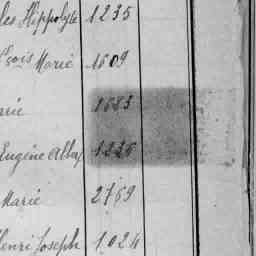 les Hippolyte 1235
çois Marie 1509
rie 1683
Eugène Alba 1226
Marie 2769
Henri Joseph 1024